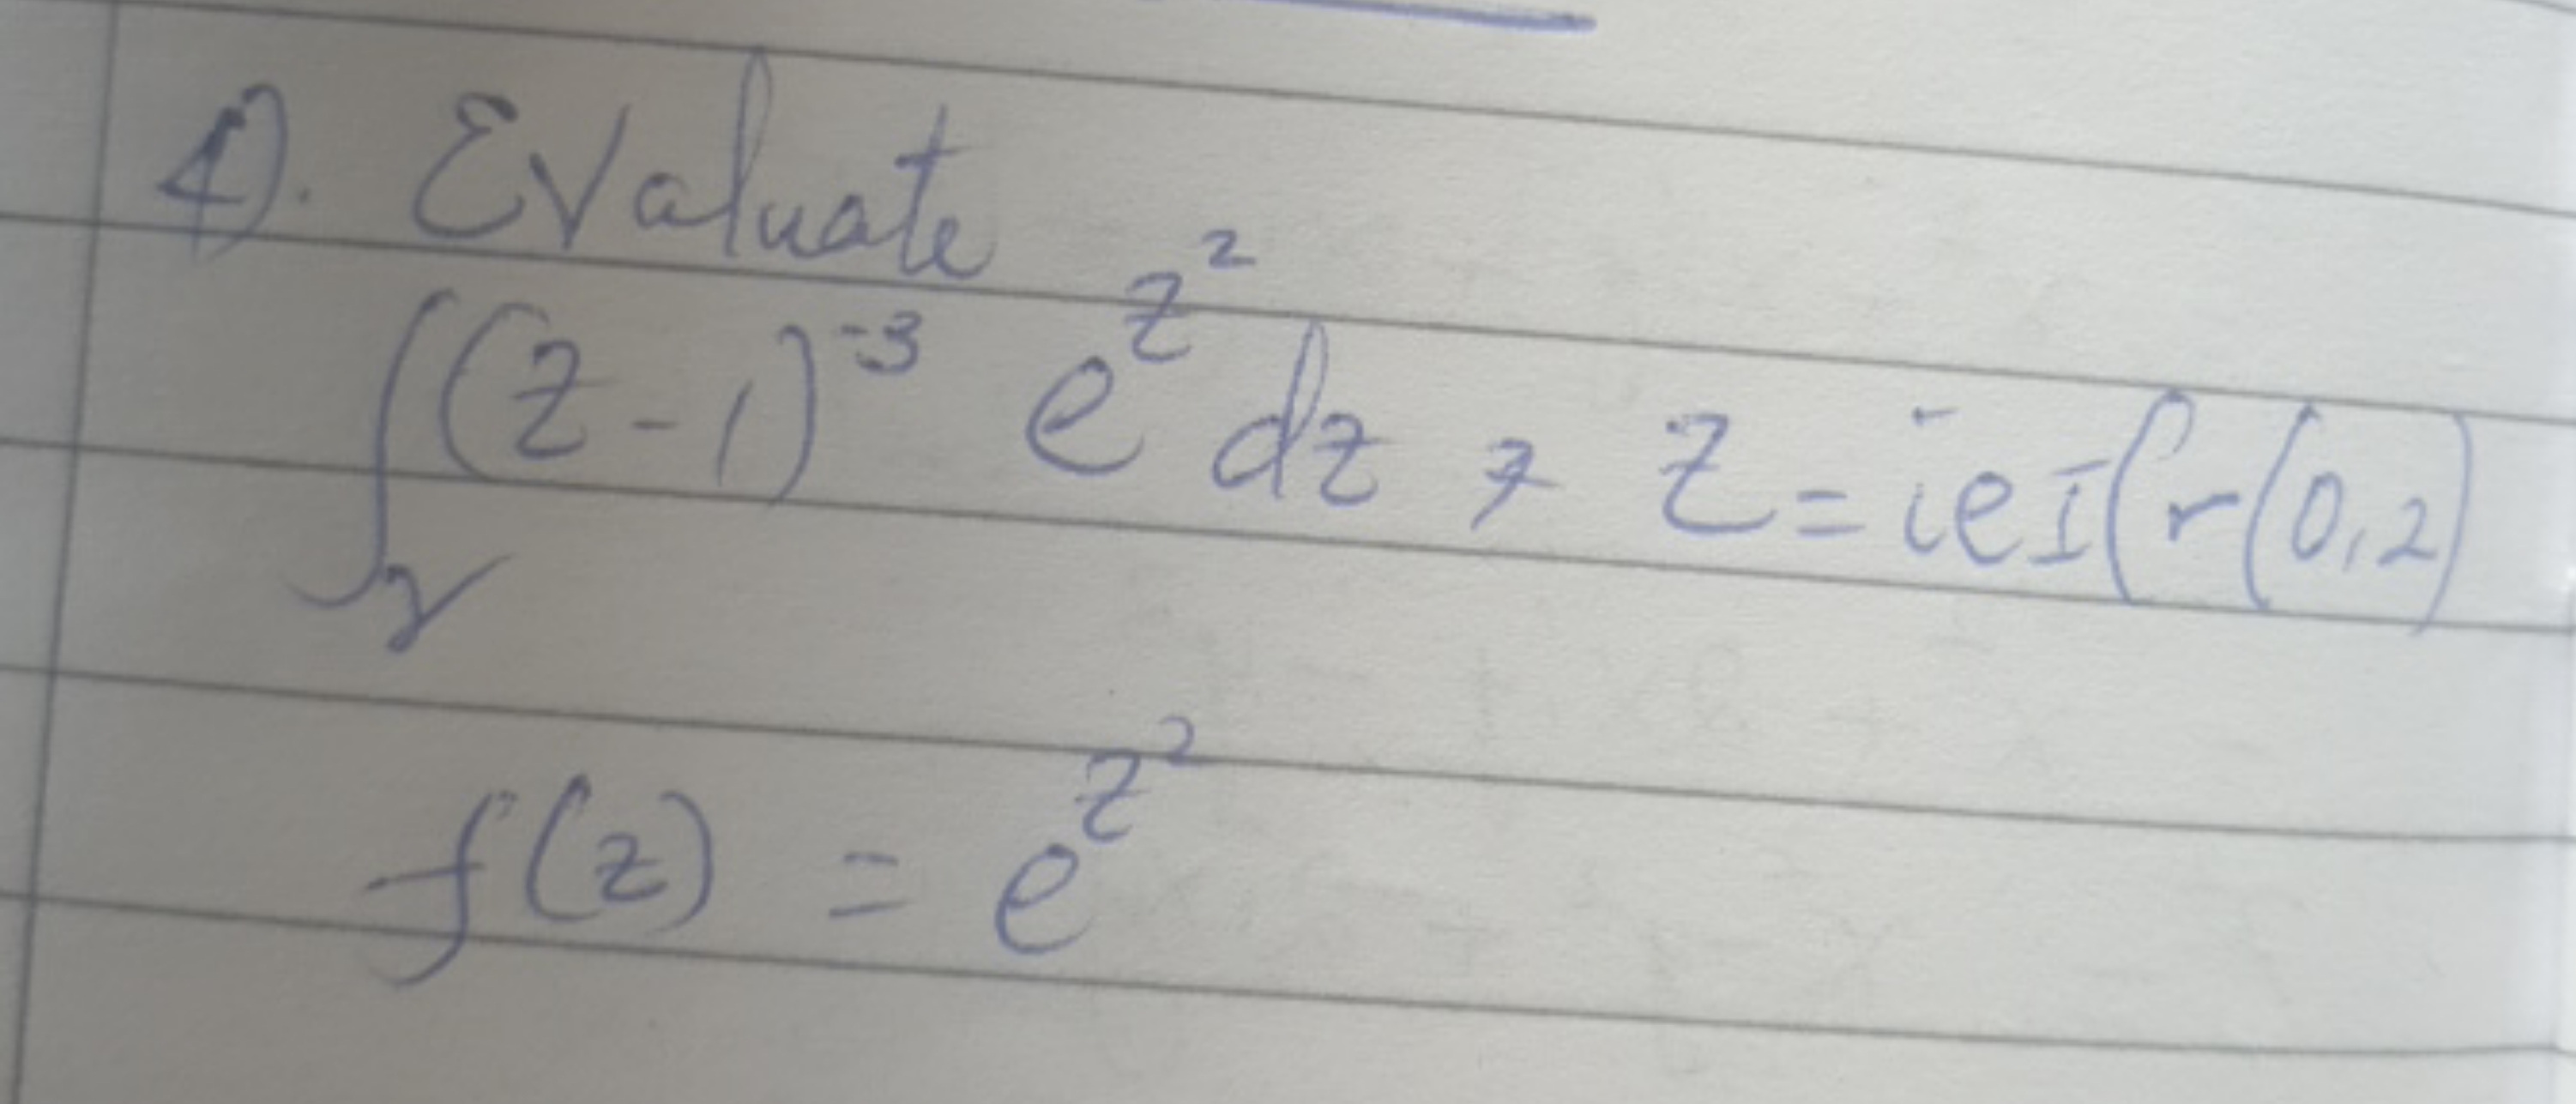 1). Evaluate
∫γ (z-1)^-3 e^z^2 dz, z = i∈I(r(0,2)
f(z) = e^z^2